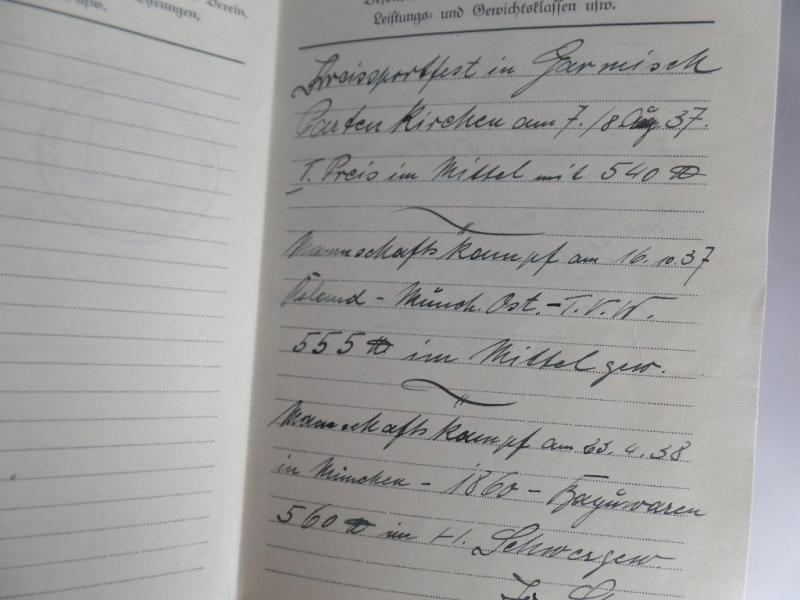 Verein,
Ehrungen,
usw.
Leistungs- und Gewichtsklassen usw.
Kreissportfest in Garmisch
Partenkirchen am 7./8 Aug. 37.
I. Preis im Mittel mit 540 ℔
Mannschaftskampf am 16.10.37
Roland - Münch. Ost. - T.V.W.
555 ℔ im Mittelgew.
Mannschaftskampf am 23.4.38
in München - 1860 - Bajuwaren
560 ℔ im H. Schwergew.